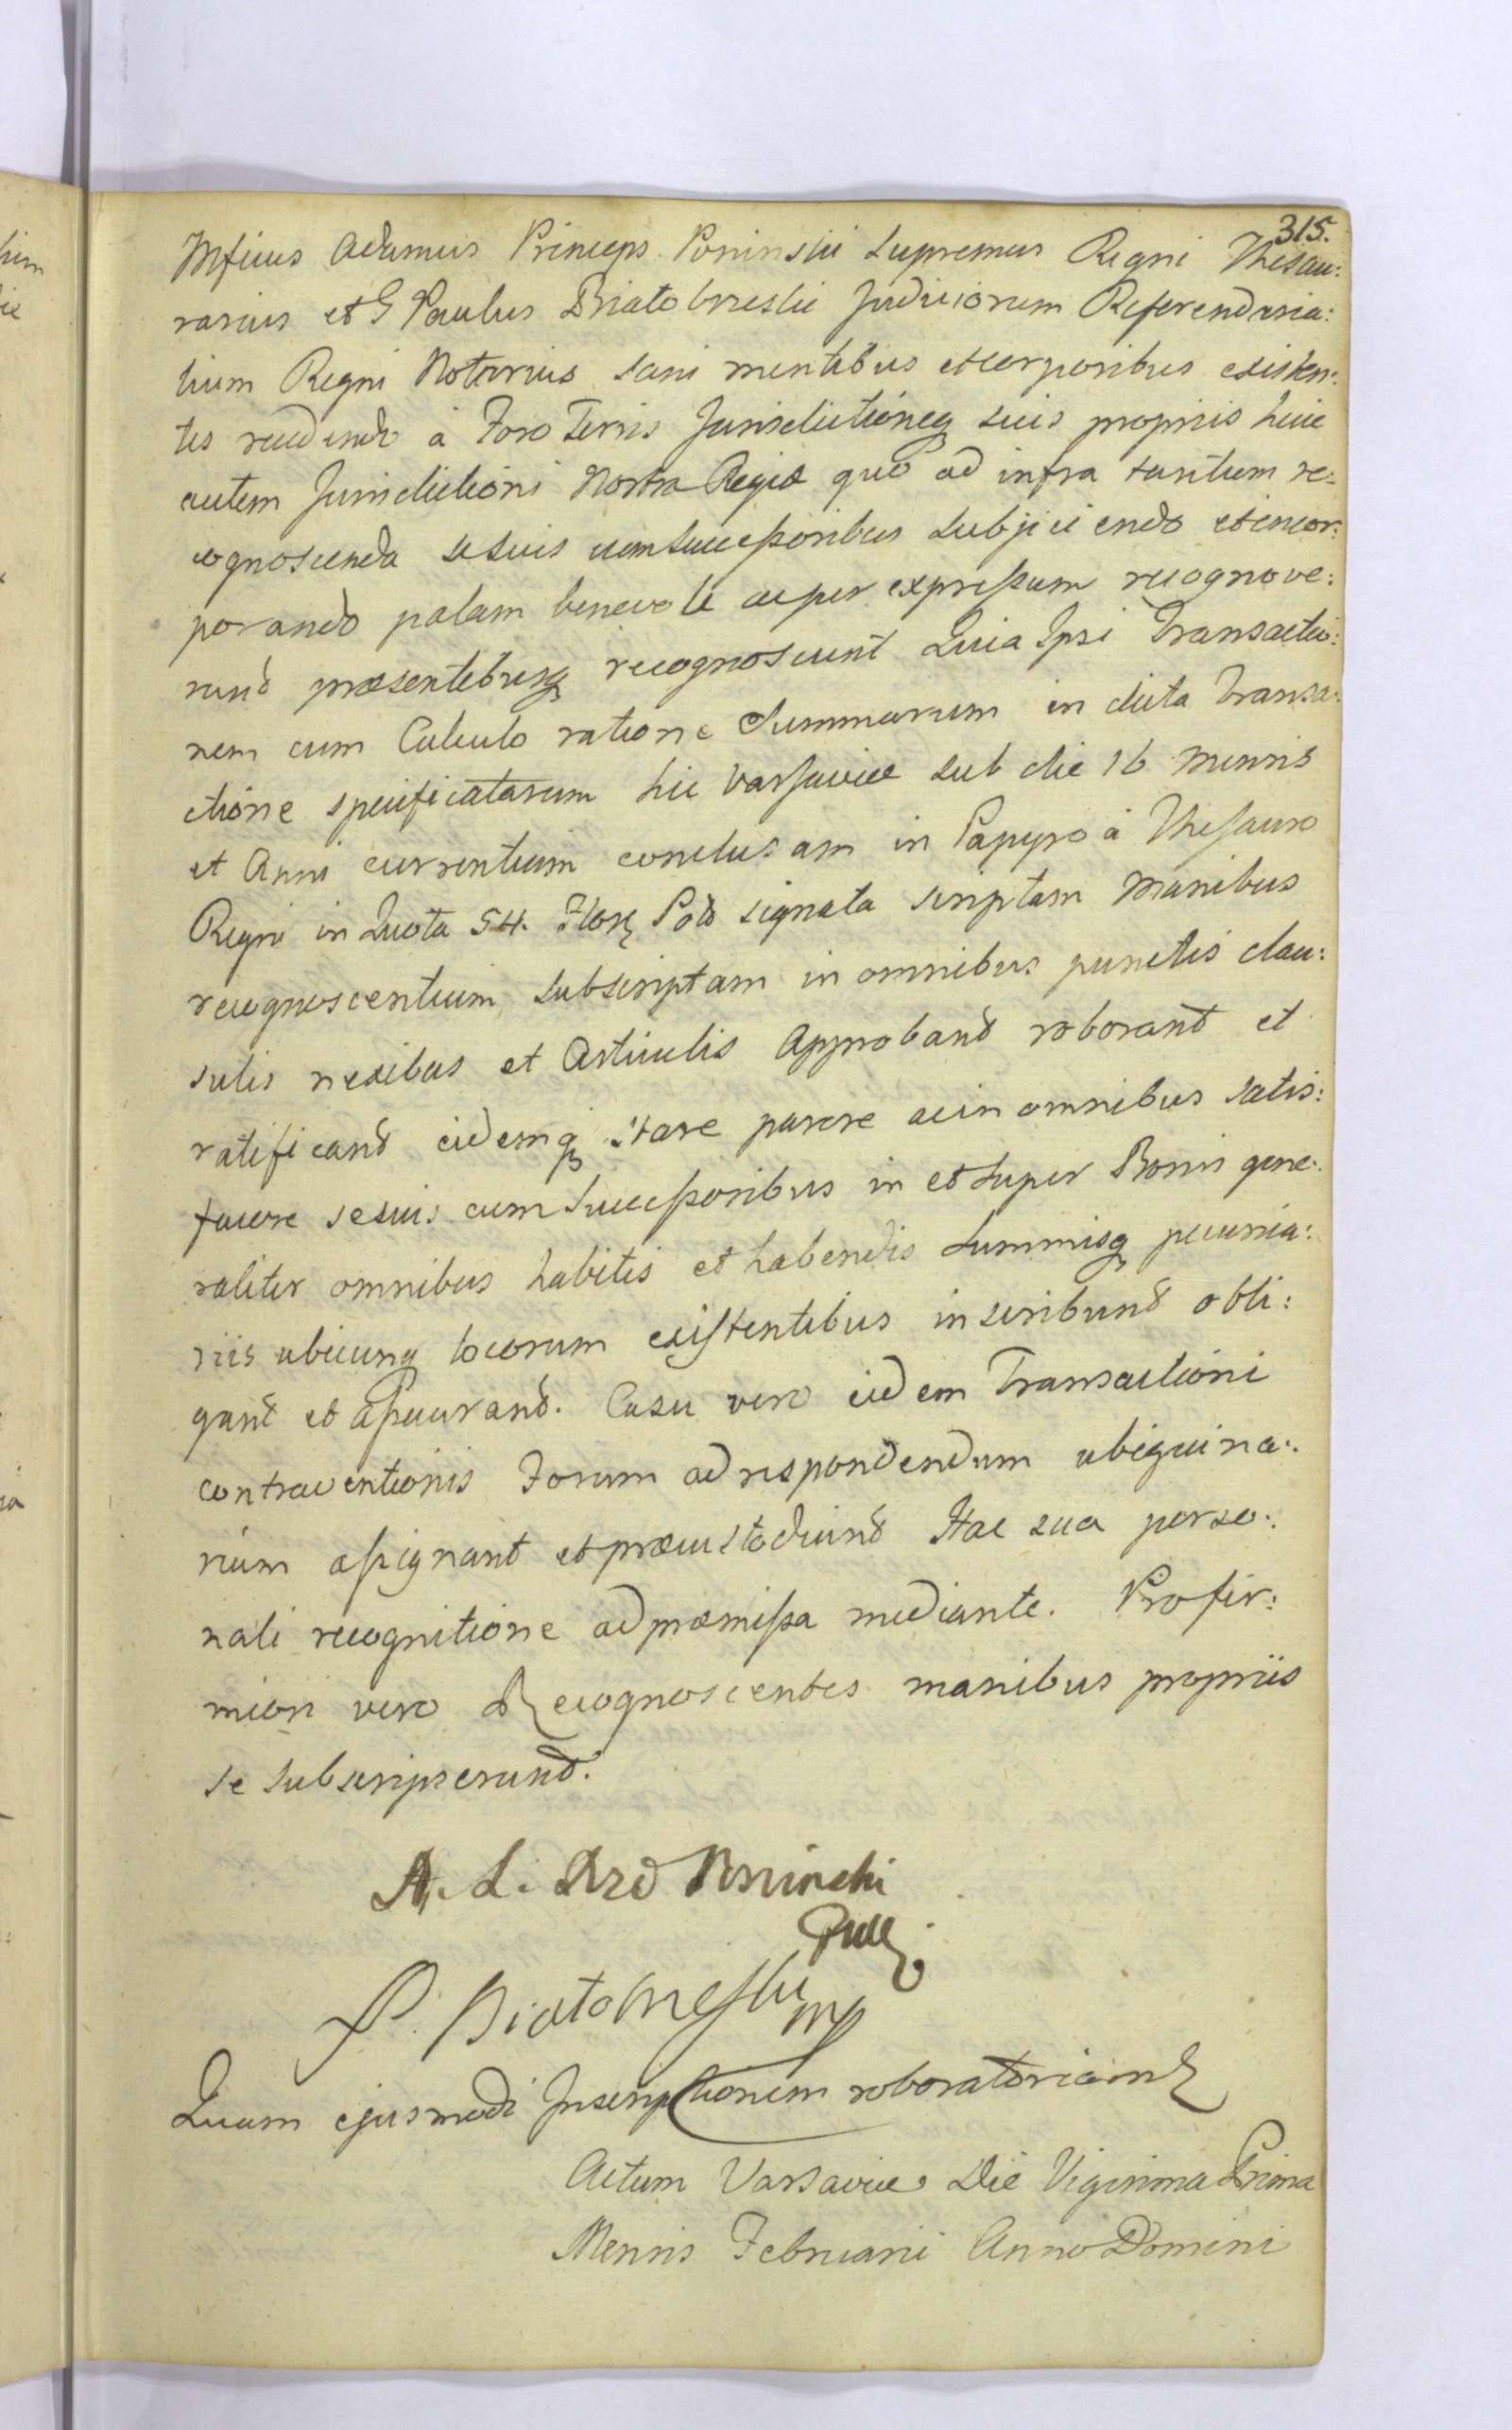 315.
Mficus Adamus Princeps Poninskii Supremus Regni Thesau:
rarius et G Paulus Białobrzeski Judiciorum Referendaria:
lium Regni Notarius sani mentibus et corporibus existen:
tes recedendo à Foro Terris Jurisdictioneq suis propriis huic
autem Jurisdictioni Nostræ Regiæ quo ad infra tantum re:
cognoscenda se suis cum Successoribus subjiciendo et incor:
porando palam benevole ac per expressum recognove:
runt præsentibusq recognoscunt Quia Ipsi Transactio:
nem cum Calculo ratione Summarum in dicta Transa:
ctione specificatarum hic Varsaviæ sub die 16 Mensis
et Anni currentium conclusam in Papyro à Thesauro
Regni in Quota 54. Flor Pol signata scriptam Manibus
recognoscentium subscriptam in omnibus punctis clau:
sulis nexibus et Articulis Approbant roborant et
ratificant eidemq stare parere ac in omnibus satis:
facere se suis cum Successoribus in et super Bonis gene:
raliter omnibus habitis et habendis Summisq pecunia:
riis ubicunq locorum existentibus inscribunt obli:
gant et assecurant. Casu vero eidem Transactioni
contraventionis Forum ad respondendum ubiquina:
rium assignant et præcustodiunt Hac sua perso:
nali recognitione ad præmissa mediante. Pro fir:
miori vero Recognoscentes manibus propriis
se subscripserunt.
A. L. Poninski
P. Białobrzeski mp
Quam ejusmodi Inscriptionem roboratoriam
Actum Varsaviæ Die Vigesima Prima
Mensis Februarii Anno Domini